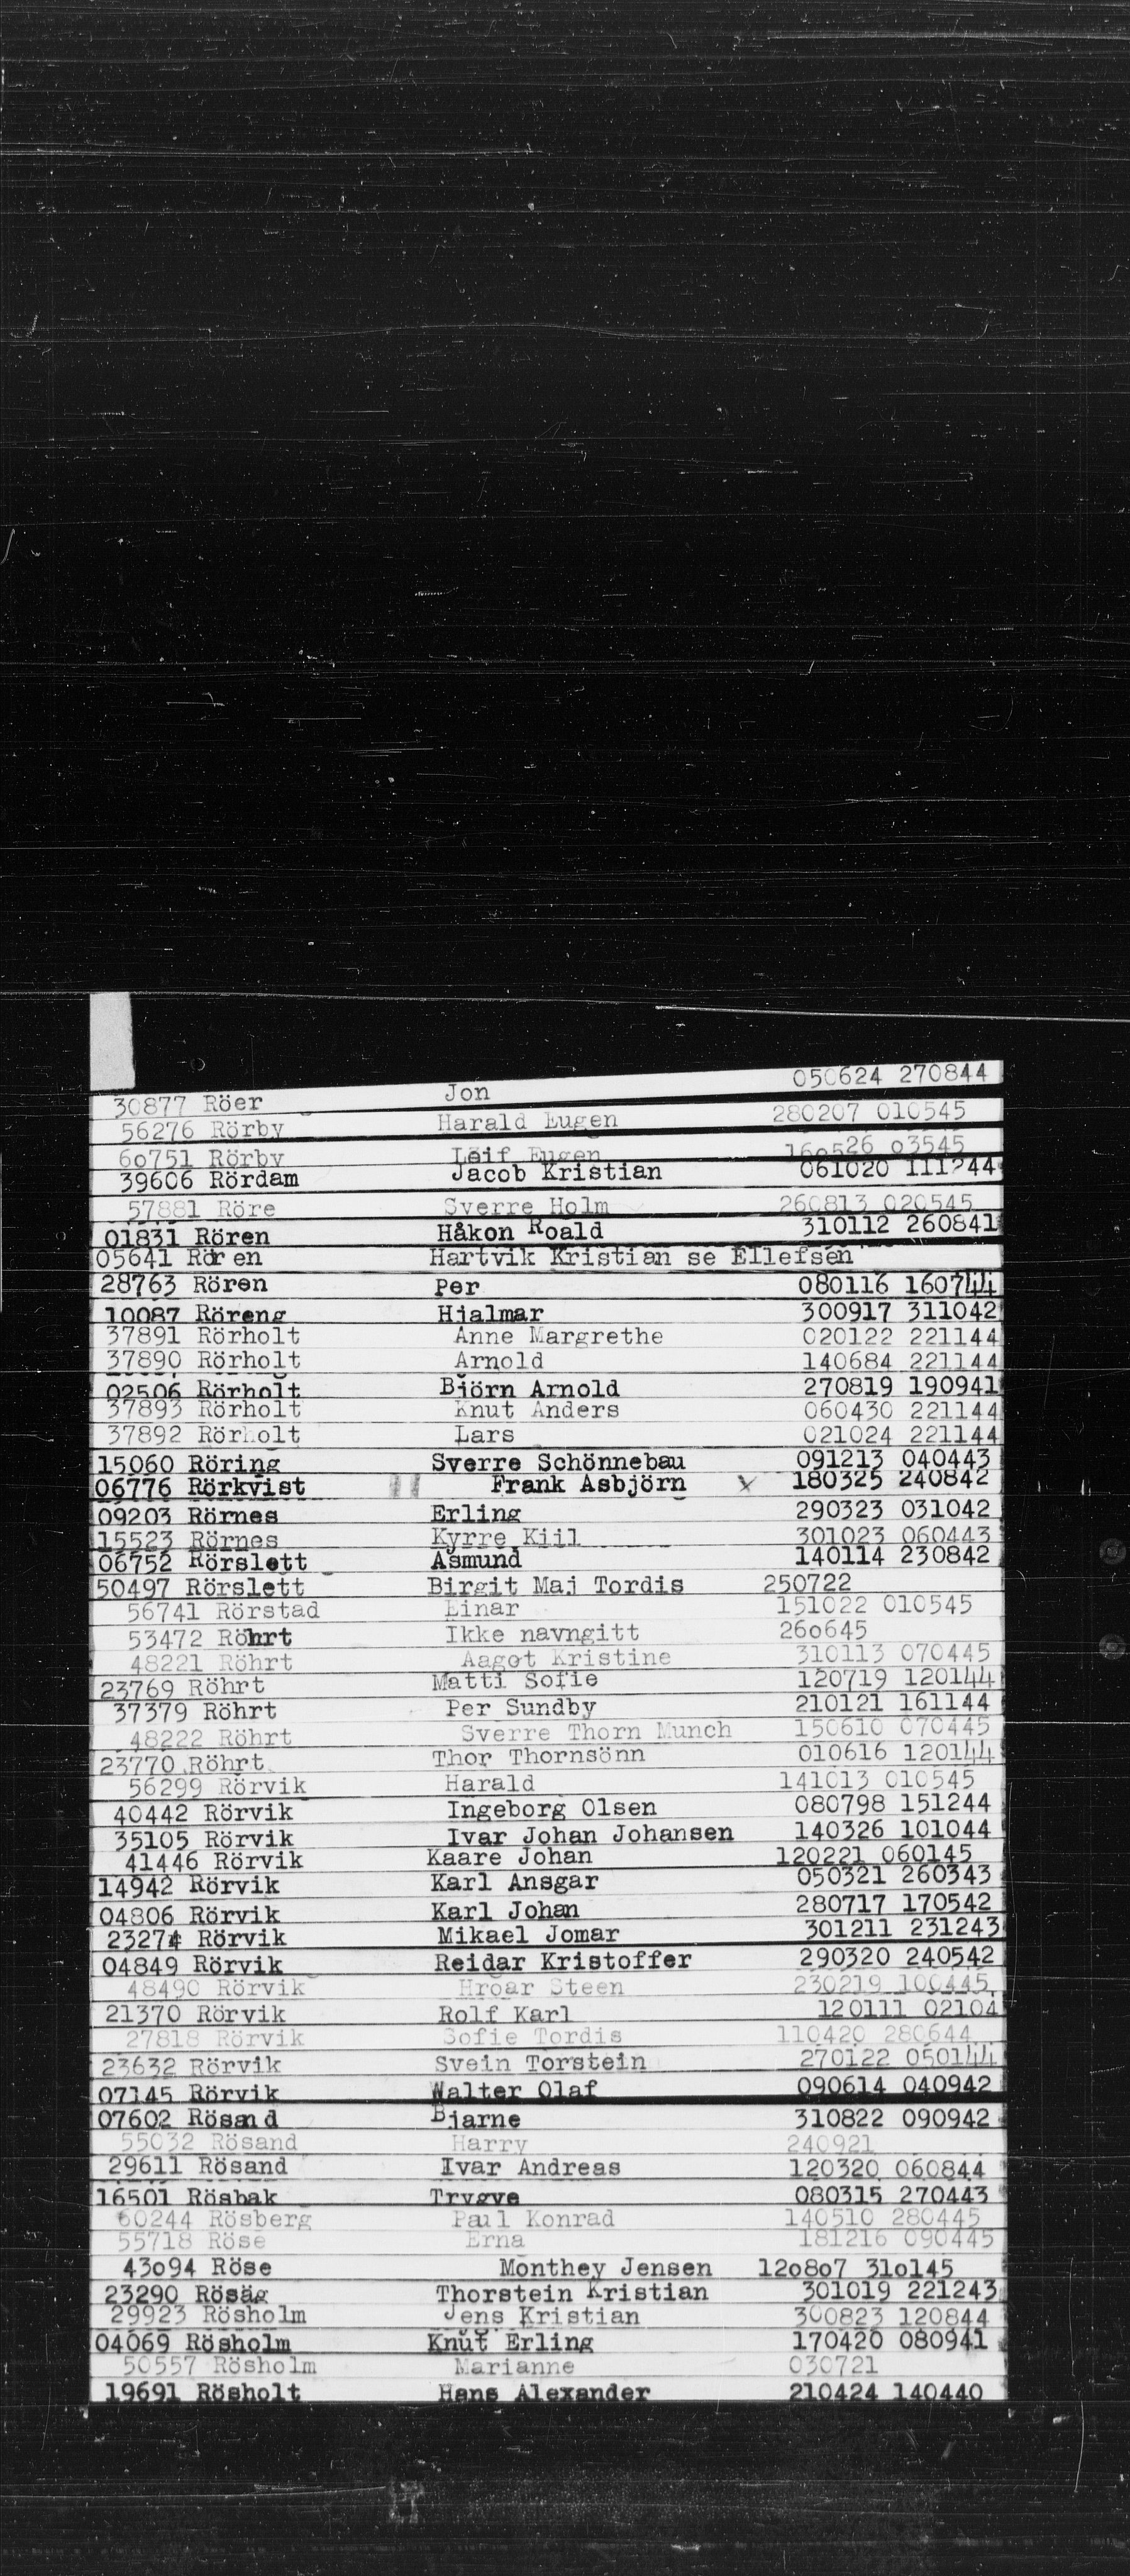 30877 Röer Jon 050624 270844
56276 Rörby Harald Eugen 280207 010545
60751 Rörby Leif Eugen 160526 03545
39606 Rördam Jacob Kristian 061020 111244
57881 Röre Sverre Holm 260813 020545
01831 Rören Håkon Roald 310112 260841
05641 Rör en Hartvik Kristian se Ellefsen
28763 Rören Per 080116 160744
10087 Röreng Hjalmar 300917 311042
37891 Rörholt Anne Margrethe 020122 221144
37890 Rörholt Arnold 140684 221144
02506 Rörholt Björn Arnold 270819 190941
37893 Rörholt Knut Anders 060430 221144
37892 Rörholt Lars 021024 221144
15060 Röring Sverre Schönnebau 091213 040443
06776 Rörkvist Frank Asbjörn x 180325 240842
09203 Rörnes Erling 290323 031042
15523 Rörnes Kyrre Kiil 301023 060443
06752 Rörslett Asmund 140114 230842
50497 Rörslett Birgit Maj Tordis 250722
56741 Rörstad Einar 151022 010545
53472 Röhrt Ikke navngitt 260645
48221 Röhrt Aagot Kristine 310113 070445
23769 Röhrt Matti Sofie 120719 120144
37379 Röhrt Per Sundby 210121 161144
48222 Röhrt Sverre Thorn Munch 150610 070445
23770 Röhrt Thor Thornsönn 010616 120144
56299 Rörvik Harald 141013 010545
40442 Rörvik Ingeborg Olsen 080798 151244
35105 Rörvik Ivar Johan Johansen 140326 101044
41446 Rörvik Kaare Johan 120221 060145
14942 Rörvik Karl Ansgar 050321 260343
04806 Rörvik Karl Johan 280717 170542
23274 Rörvik Mikael Jomar 301211 231243
04849 Rörvik Reidar Kristoffer 290320 240542
48490 Rörvik Hroar Steen 230219 100445
21370 Rörvik Rolf Karl 120111 02104
27818 Rörvik Sofie Tordis 110420 280644
23632 Rörvik Svein Torstein 270122 050144
07145 Rörvik Walter Olaf 090614 040942
07602 Rösand Bjarne 310822 090942
55032 Rösand Harry 240921
29611 Rösand Ivar Andreas 120320 060844
16501 Rösbak Trygve 080315 270443
60244 Rösberg Paul Konrad 140510 280445
55718 Röse Erna 181216 090445
43094 Röse Monthey Jensen 120807 310145
23290 Rösäg Thorstein Kristian 301019 221243
29923 Rösholm Jens Kristian 300823 120844
04069 Rösholm Knut Erling 170420 080941
50557 Rösholm Marianne 030721
19691 Rösholt Hans Alexander 210424 140440